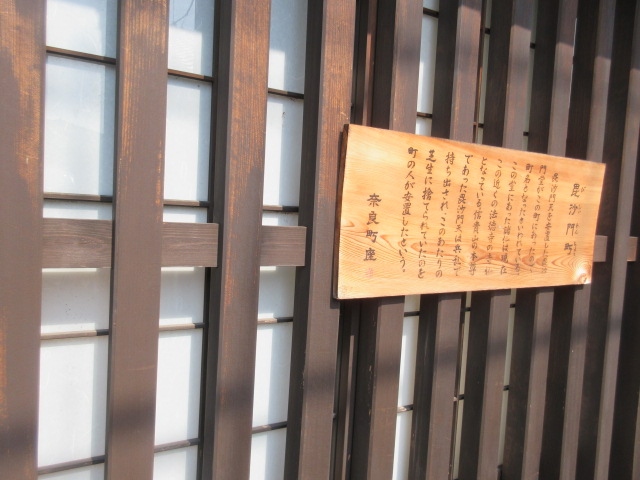 毘沙門町
毘沙門天を安置した毘沙
門堂がこの町にあったので
町名となったといわれている。
この堂にあった諸仏は現在
この近くの法徳寺の
となっている。信貴山の本尊
であった毘沙門天は兵乱で
持ち出され、このあたりの
芝生に捨てられていたのを
町の人が安置したという。
奈良町座